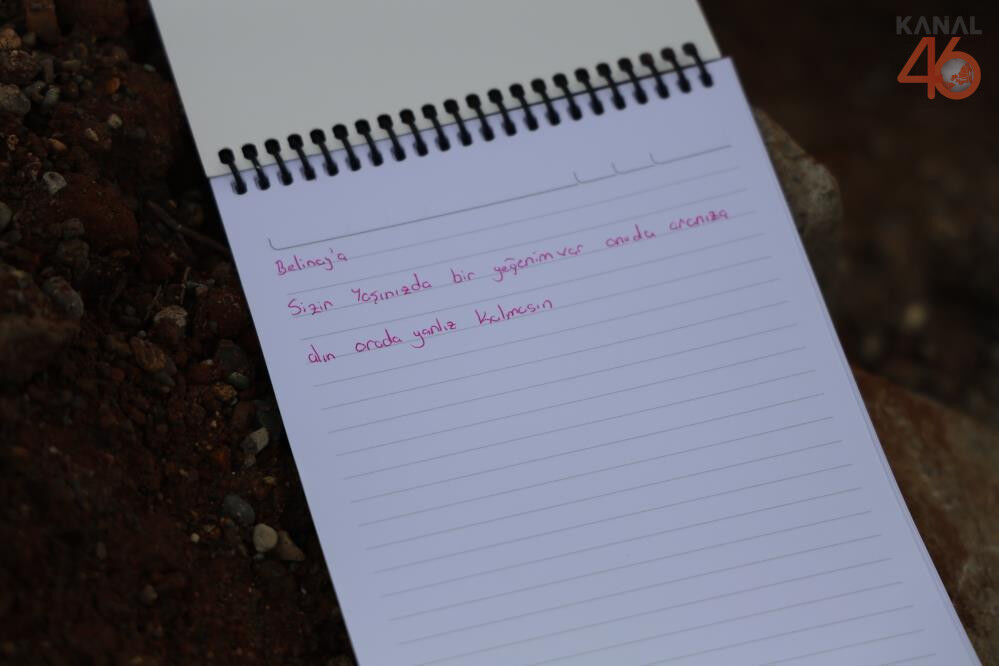 KANAL
46
Belinay'a
Sizin Yaşınızda bir yeğenim var onuda aranıza
alın orada yanlız kalmasın